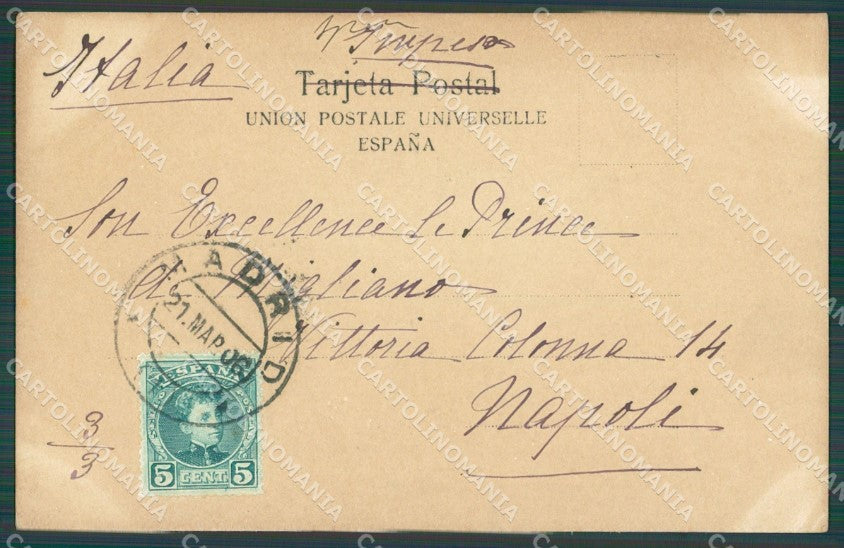 Impreso
Italia
Tarjeta Postal
UNION POSTALE UNIVERSELLE
ESPAÑA
Son Excellence Le Prince
MADRID
21.MAR 06
Vittoria Colonna 14
Napoli
3/3
ESPAÑA
5 CENT. 5
CARTOLINOMANIA